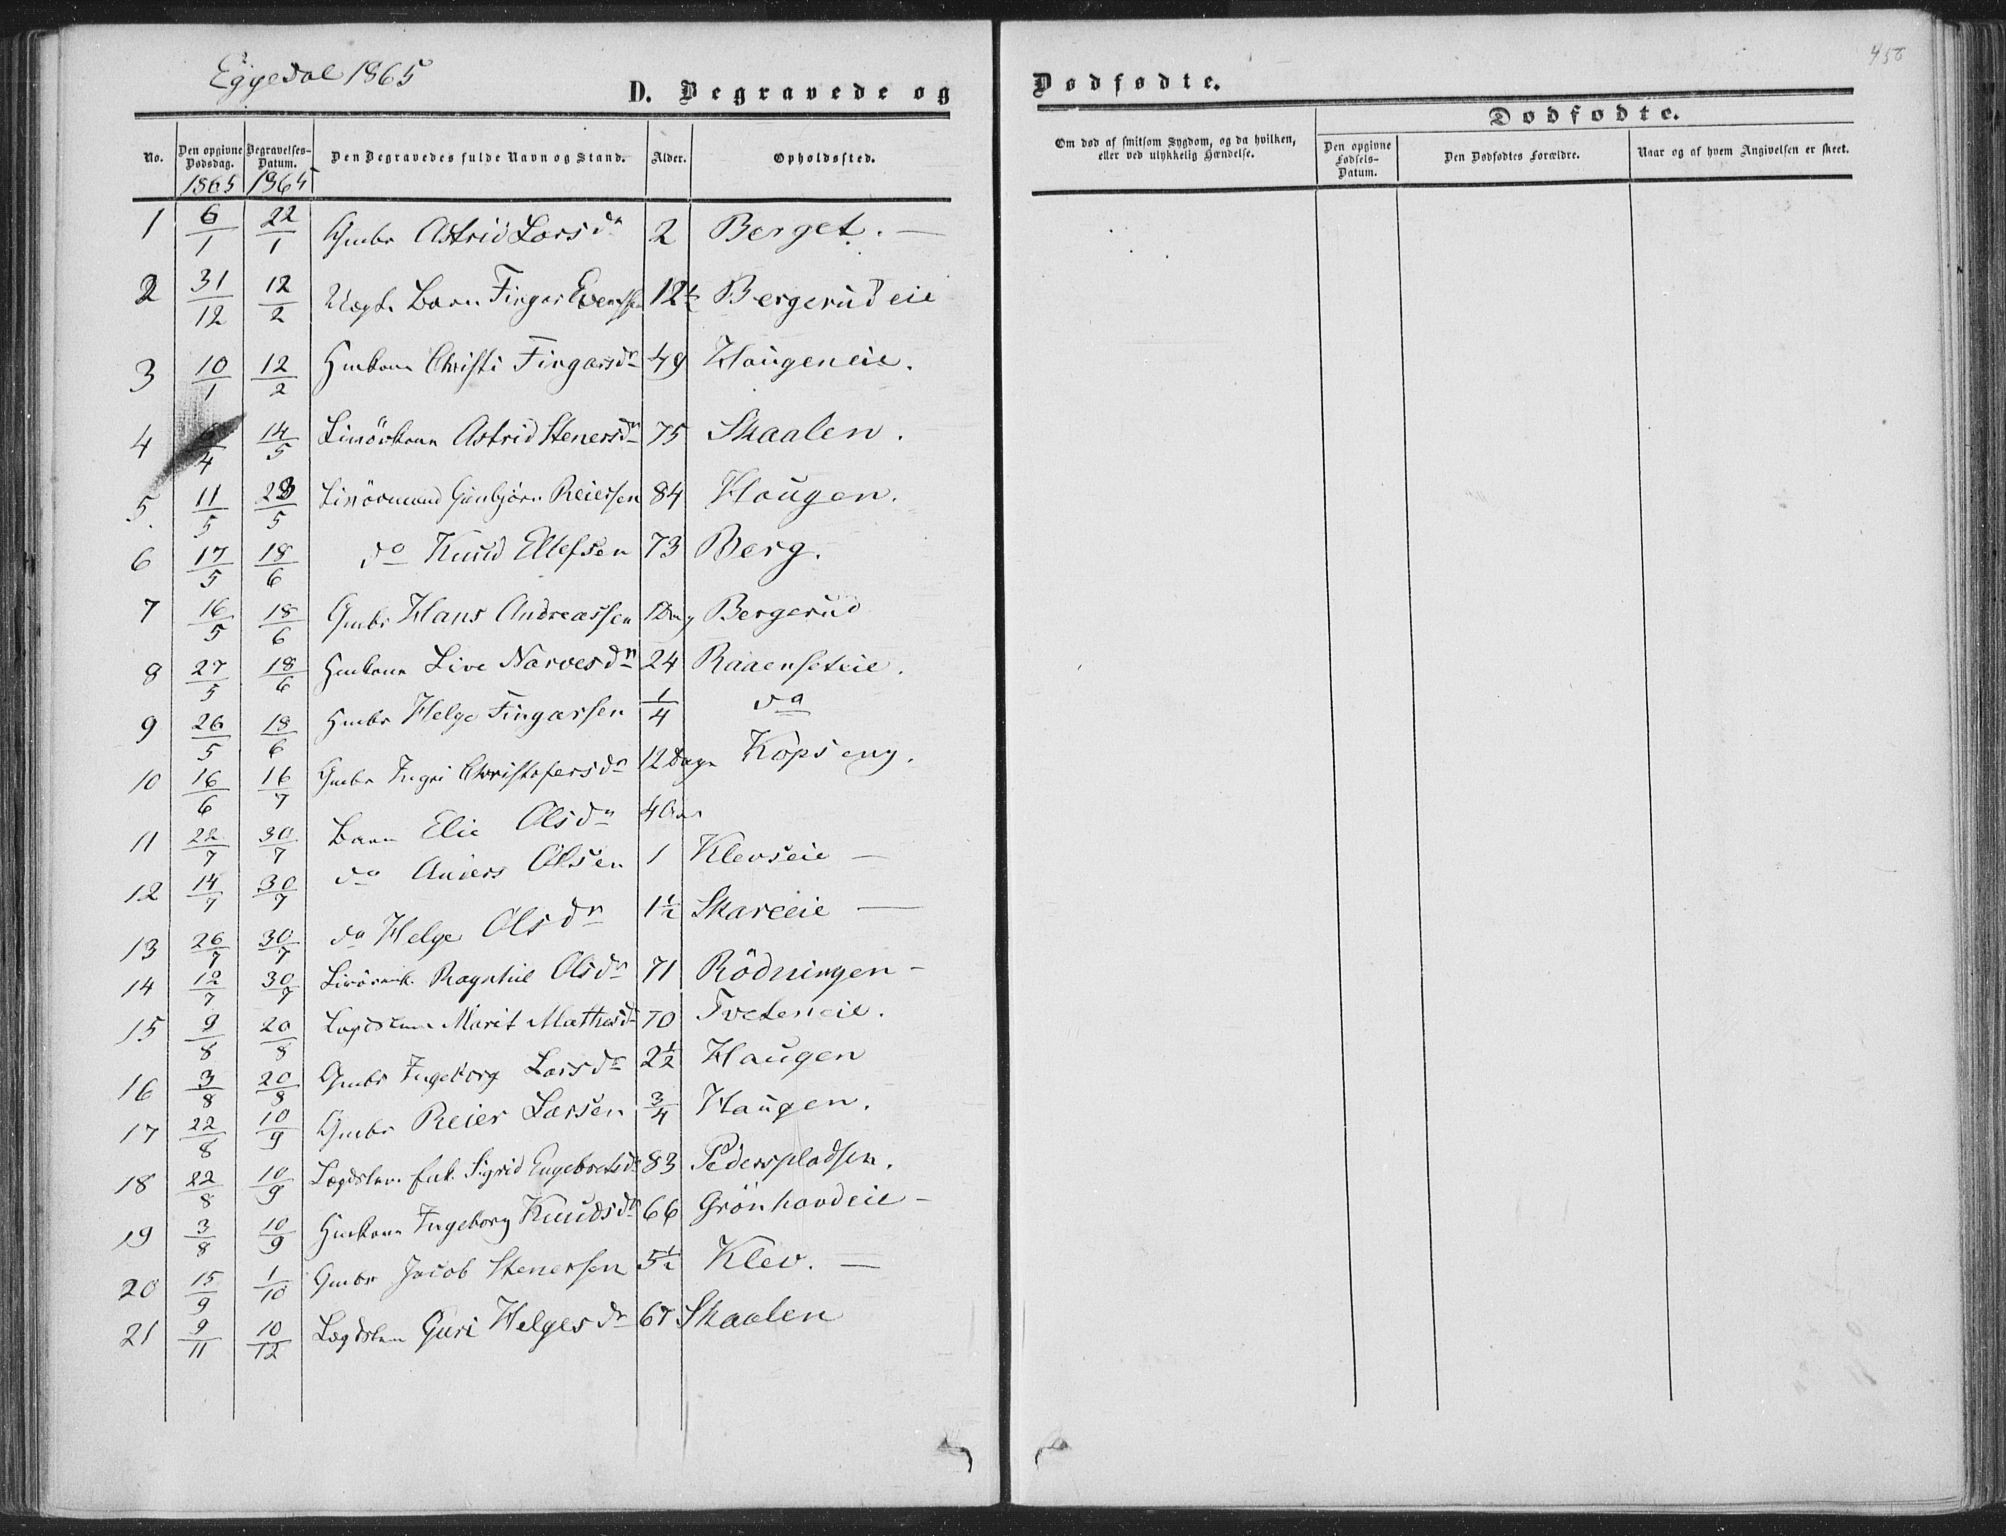 Eggedal 1865
D. Begravede og
No. | Den opgivne Dødsdag. | Begravelses-Datum. | Den Begravedes fulde Navn og Stand. | Alder. | Opholdssted.
1865 | 1865
1 | 6/1 | 22/1 | Gmbr Astrid Larsdr | 2 | Berget. —
2 | 31/12 | 12/2 | Uægte Barn Fingar Evensen | 12 1/2 | Bergerud eie
3 | 10/1 | 12/2 | Hmkone Christi Fingarsdr | 49 | Haugeneie.
4 | /4 | 14/5 | Livörskone Astrid Stenersdr | 75 | Skaalen.
5. | 11/5 | 28/5 | Livörmand Gunbjörn Reiersen | 84 | Haugen.
6 | 17/5 | 18/6 | do Knud Ellefsen | 73 | Berg.
7 | 16/5 | 18/6 | Gmbr Hans Andreassen | 1 Dag | Bergerud
8 | 27/5 | 18/6 | Hmkone Live Narvesdr | 24 | Raaenseteie.
9 | 26/5 | 18/6 | Hmbr Helge Fingarsen | 1/4 | do
10 | 16/6 | 16/7 | Gmbr Ingri Christofersdr | 12 Dage | Kopseng.
11 | 22/7 | 30/7 | Barn Elie Olsdr | 4 Aar
12 | 14/7 | 30/7 | do Anders Olsen | 1 | Klevseie —
13 | 26/7 | 30/7 | do Helge Olsdr | 1 1/2 | Skareeie —
14 | 12/7 | 30/7 | Livörenk. Ragnhil Olsdr | 71 | Rödningen -
15 | 9/8 | 20/8 | Lægdslem Marit Mathesdr | 70 | Tveteneie.
16 | 3/8 | 20/8 | Gmbr Ingeborg Larsdr | 2 1/2 | Haugen
17 | 22/8 | 10/9 | Gmbr Reier Larsen | 3/4 | Haugen.
18 | 22/8 | 10/9 | Lægdslem Enk. Sigrid Engebretsdr | 83 | Pederspladsen.
19 | 3/8 | 10/9 | Hmkone Ingeborg Knudsdr | 66 | Grönhovdeie -
20 | 15/9 | 1/10 | Gmbr Jacob Stenersen | 5 1/2 | Klev. —
21 | 9/11 | 10/12 | Lægdslem Guri Helgesdr | 67 | Skaalen
458
Dødfødte.
Om død af smitsom Sygdom, og da hvilken, eller ved ulykkelig Hændelse.
Dødfødte.
Den opgivne Fødsels-Datum. | Den Dødfødtes Forældre. | Naar og af hvem Angivelsen er skeet.